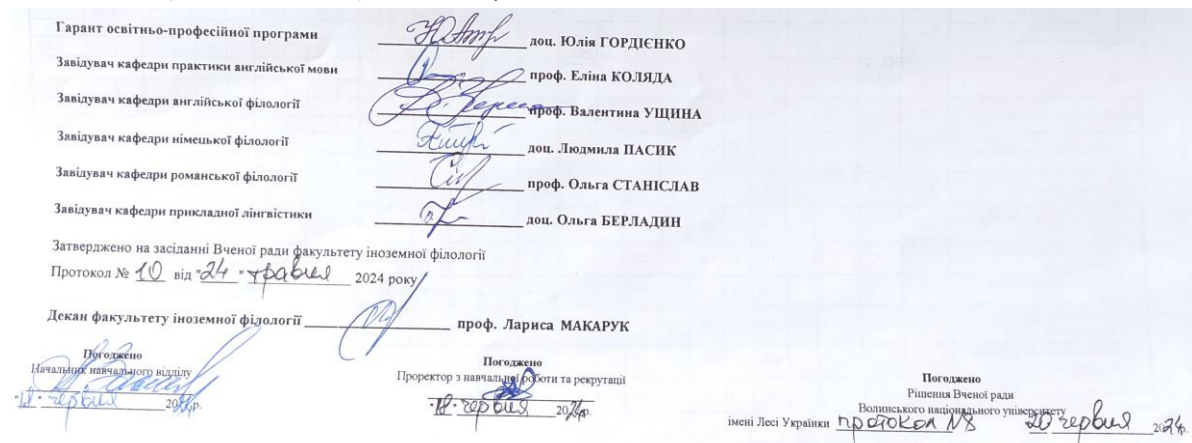 Гарант освітньо-професійної програми доц. Юлія ГОРДІЄНКО
Завідувач кафедри практики англійської мови проф. Еліна КОЛЯДА
Завідувач кафедри англійської філології проф. Валентина УЩИНА
Завідувач кафедри німецької філології доц. Людмила ПАСИК
Завідувач кафедри романської філології проф. Ольга СТАНІСЛАВ
Завідувач кафедри прикладної лінгвістики доц. Ольга БЕРЛАДИН
Затверджено на засіданні Вченої ради факультету іноземної філології
Протокол № 10 від "24" травня 2024 року
Декан факультету іноземної філології проф. Лариса МАКАРУК
Погоджено
Начальник навчального відділу
"18" червня 2024р.
Погоджено
Проректор з навчальної роботи та рекрутації
"18" червня 2024р.
Погоджено
Рішення Вченої ради
Волинського національного університету
імені Лесі Українки протокол №8 20 червня 2024р.